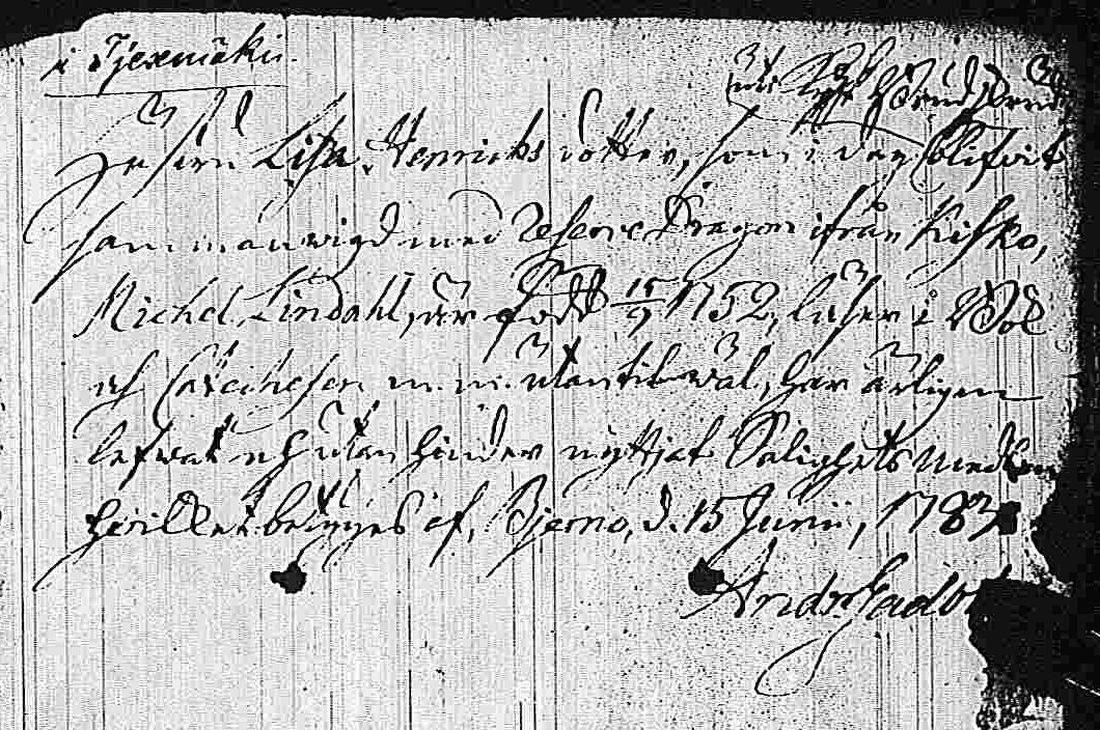 i Tjermäki
Jungfrun Lisa Henrichs dotter, som i dag blifwit
sammanwigd med Reserve Dragon ifrån Kisko,
Michel Lindahl, är född 15/9 1752, läser i Bok
och Catechesen m. m. utantil wäl, har ärligen
lefwat och utan hinder nyttjat Salighets medlen
hwilket betyges af, Bjerno, d. 15 Junii, 1783
Andr. Gadol